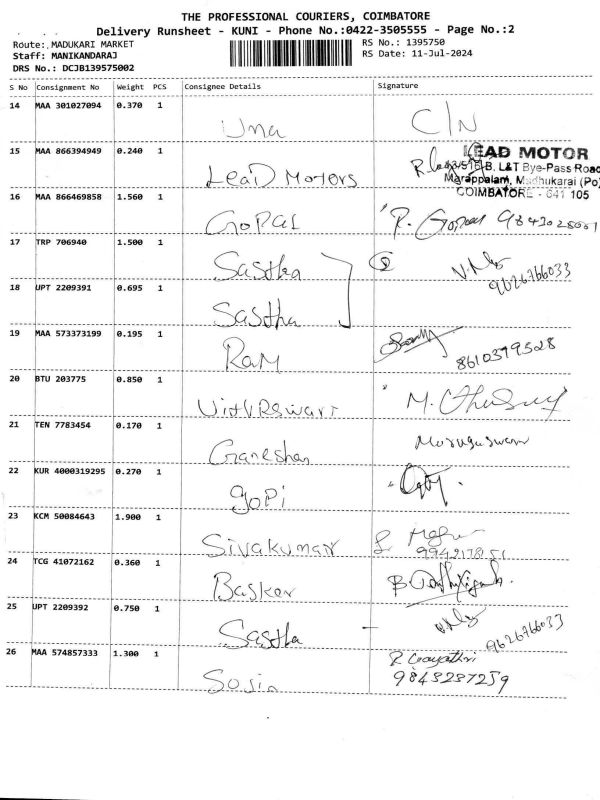 THE PROFESSIONAL COURIERS, COIMBATORE
Delivery Runsheet - KUNI - Phone No.:0422-3505555 - Page No.:2
Route: MADUKARI MARKET RS No.: 1395750
Staff: MANIKANDARAJ RS Date: 11-Jul-2024
DRS No.: DCJB139575002
S No Consignment No Weight PCS Consignee Details Signature
14 MAA 301027094 0.370 1
Uma C/N
15 MAA 866394949 0.240 1 LEAD MOTOR
B, L&T Bye-Pass Road
Marappalam, Madhukarai (Po)
COIMBATORE - 641 105
LeaD Motors
16 MAA 866469858 1.560 1
GoPal R. Gopal
17 TRP 706940 1.500 1
Sastha 9626766033
18 UPT 2209391 0.695 1
Sastha
19 MAA 573373199 0.195 1
RaM
20 BTU 203775 0.850 1
M.
21 TEN 7783454 0.170 1
Ganeshan
22 KUR 4000319295 0.270 1
goPi
23 KCM 50084643 1.900 1
Sivakumar
24 TCG 41072162 0.360 1
Basker
25 UPT 2209392 0.750 1
Sastha 9626766033
26 MAA 574857333 1.300 1 R Gayathri
9843237259